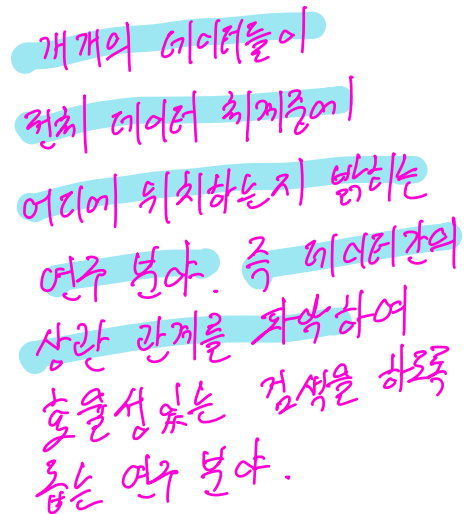 개개의 데이터들이
전체 데이터 체계중에
어디에 위치하는지 밝히는
연구 분야. 즉 데이터간의
상관 관계를 파악하여
효율성있는 검색을 하도록
돕는 연구 분야.